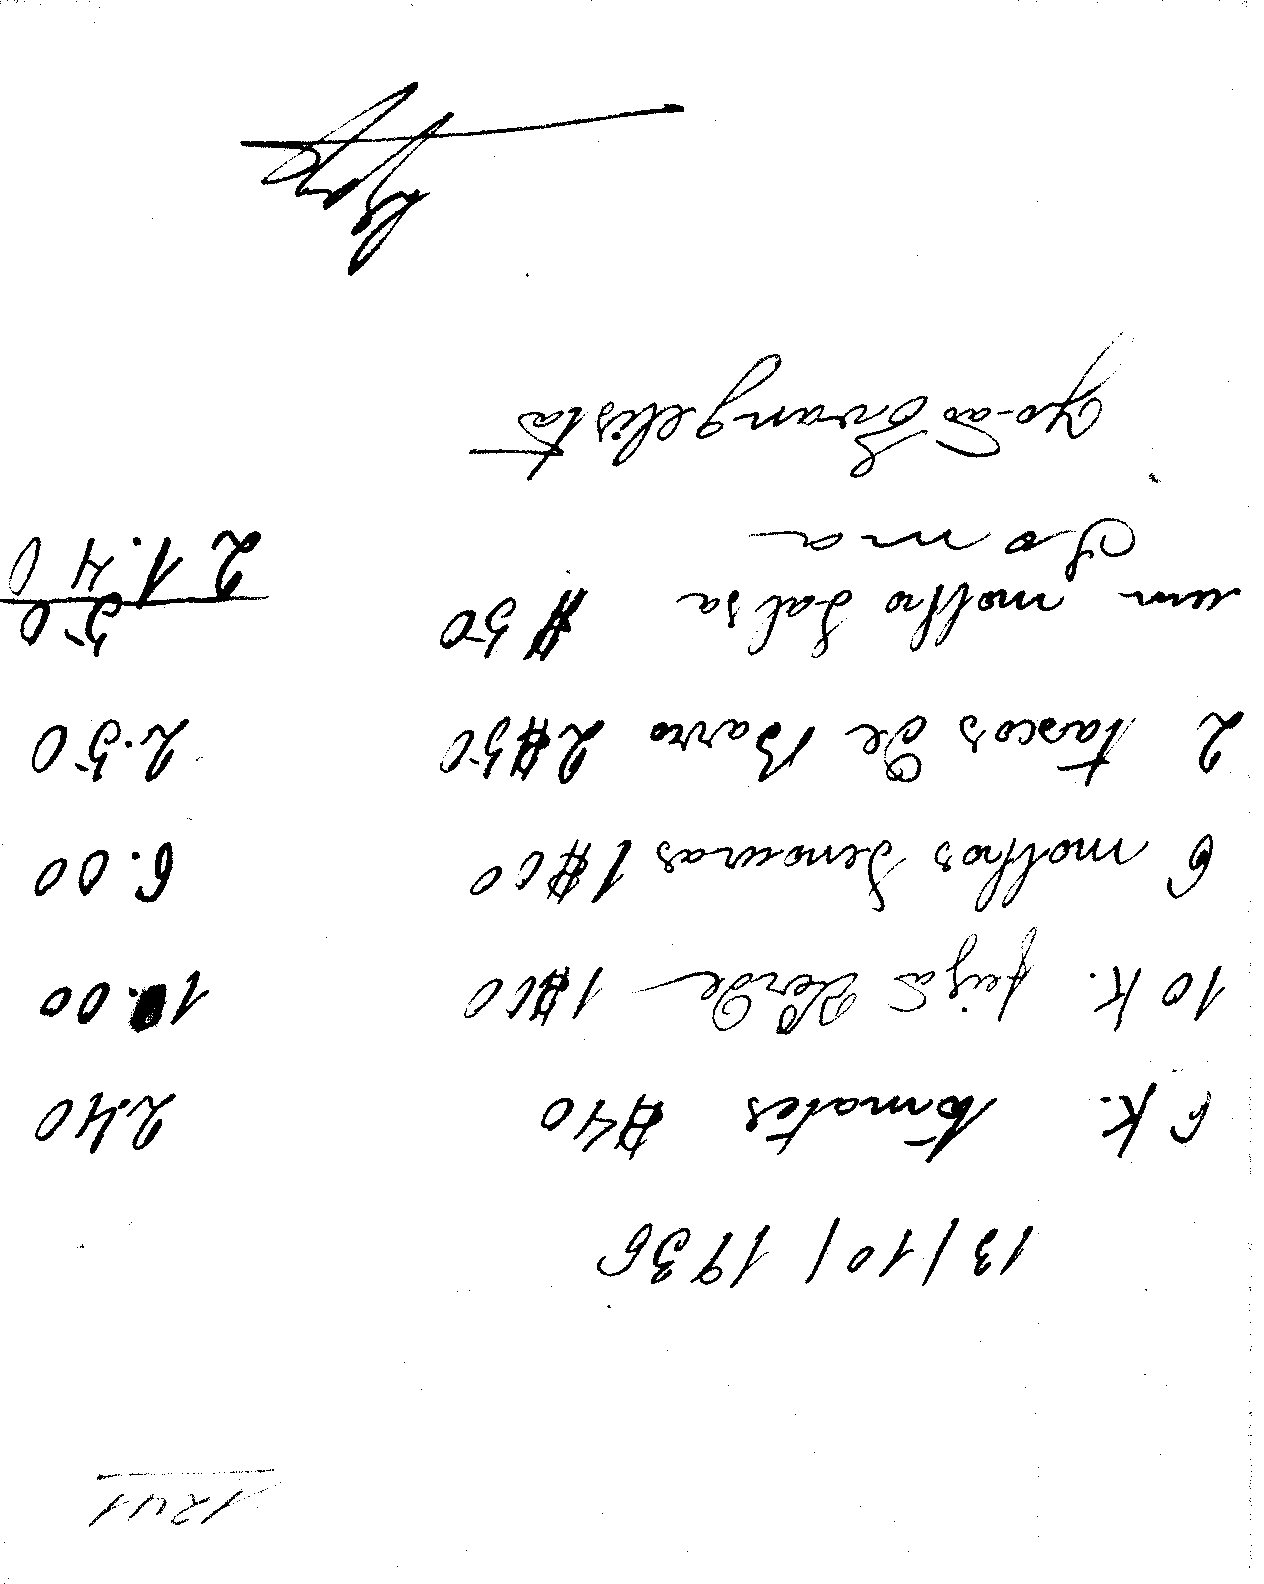 1241
13/10/1936
6 K. tomates $40 2.40
10 K. feijã Verde 1$00 10.00
6 molhos Senouras 1$00 6.00
2 tascos de Barro 2$50 2.50
um molho Salsa $50 50
Soma 21.40
João Evangelista